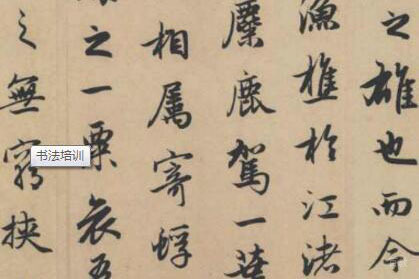 之雄也而今
漁樵於江渚
麋鹿駕一葉
相屬寄蜉
之一粟哀吾
之無窮挾
书法培训